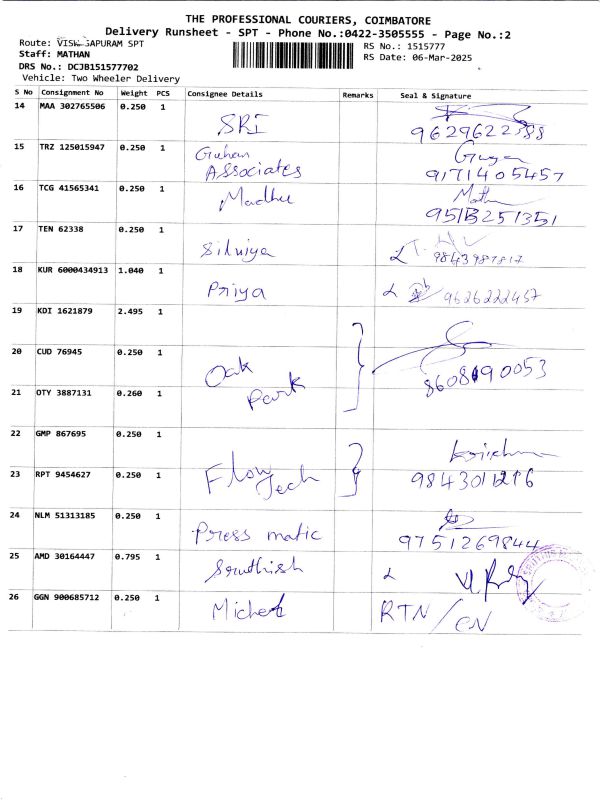 THE PROFESSIONAL COURIERS, COIMBATORE
Delivery Runsheet - SPT - Phone No.:0422-3505555 - Page No.:2
Route: SPT
RS No.: 1515777
Staff: MATHAN
RS Date: 06-Mar-2025
DRS No.: DCJB151577702
Vehicle: Two Wheeler Delivery
S No Consignment No Weight PCS Consignee Details Remarks Seal & Signature
14 MAA 302765506 0.250 1
SRI
15 TRZ 125015947 0.250 1 Guhan
Associates 9171405457
16 TCG 41565341 0.250 1 Madhu
17 TEN 62338 0.250 1
18 KUR 6000434913 1.040 1
Priya 9626222457
19 KDI 1621879 2.495 1
20 CUD 76945 0.250 1
Oak
Park
21 OTY 3887131 0.260 1
22 GMP 867695 0.250 1
Flow
Tech
23 RPT 9454627 0.250 1
24 NLM 51313185 0.250 1
Press matic 9751269844
25 AMD 30164447 0.795 1
26 GGN 900685712 0.250 1
RTN / CN